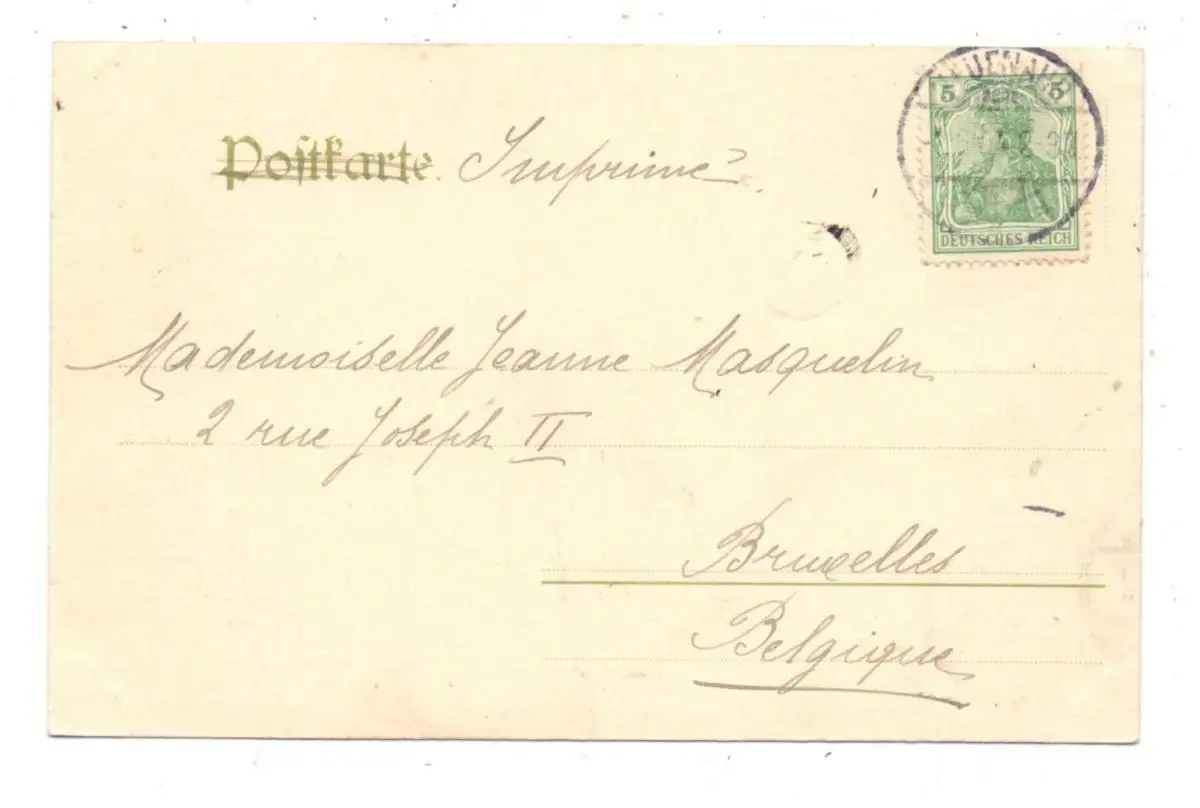 Postkarte. Imprimé
5 5
DEUTSCHES REICH
Mademoiselle Jeanne Masquelin
2 rue Joseph II
Bruxelles
Belgique